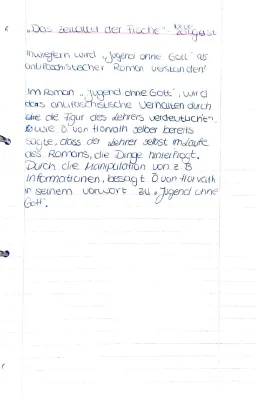 "Das Zeitalter der Fische"
Inwiefern wird "Jugend ohne Gott" als
antifaschistischer Roman verstanden?
Im Roman "Jugend ohne Gott", wird
das antifaschistische Verhalten durch
die Figur des Lehrers verdeutlicht.
sowie Ö von Horváth selber bereits
sagte, dass der Lehrer selbst im Laufe
des Romans, die Dinge hinterfragt.
Durch die Manipulation von z.B
Informationen, besagt Ö von Horváth
in seinem Vorwort zu "Jugend ohne
Gott".